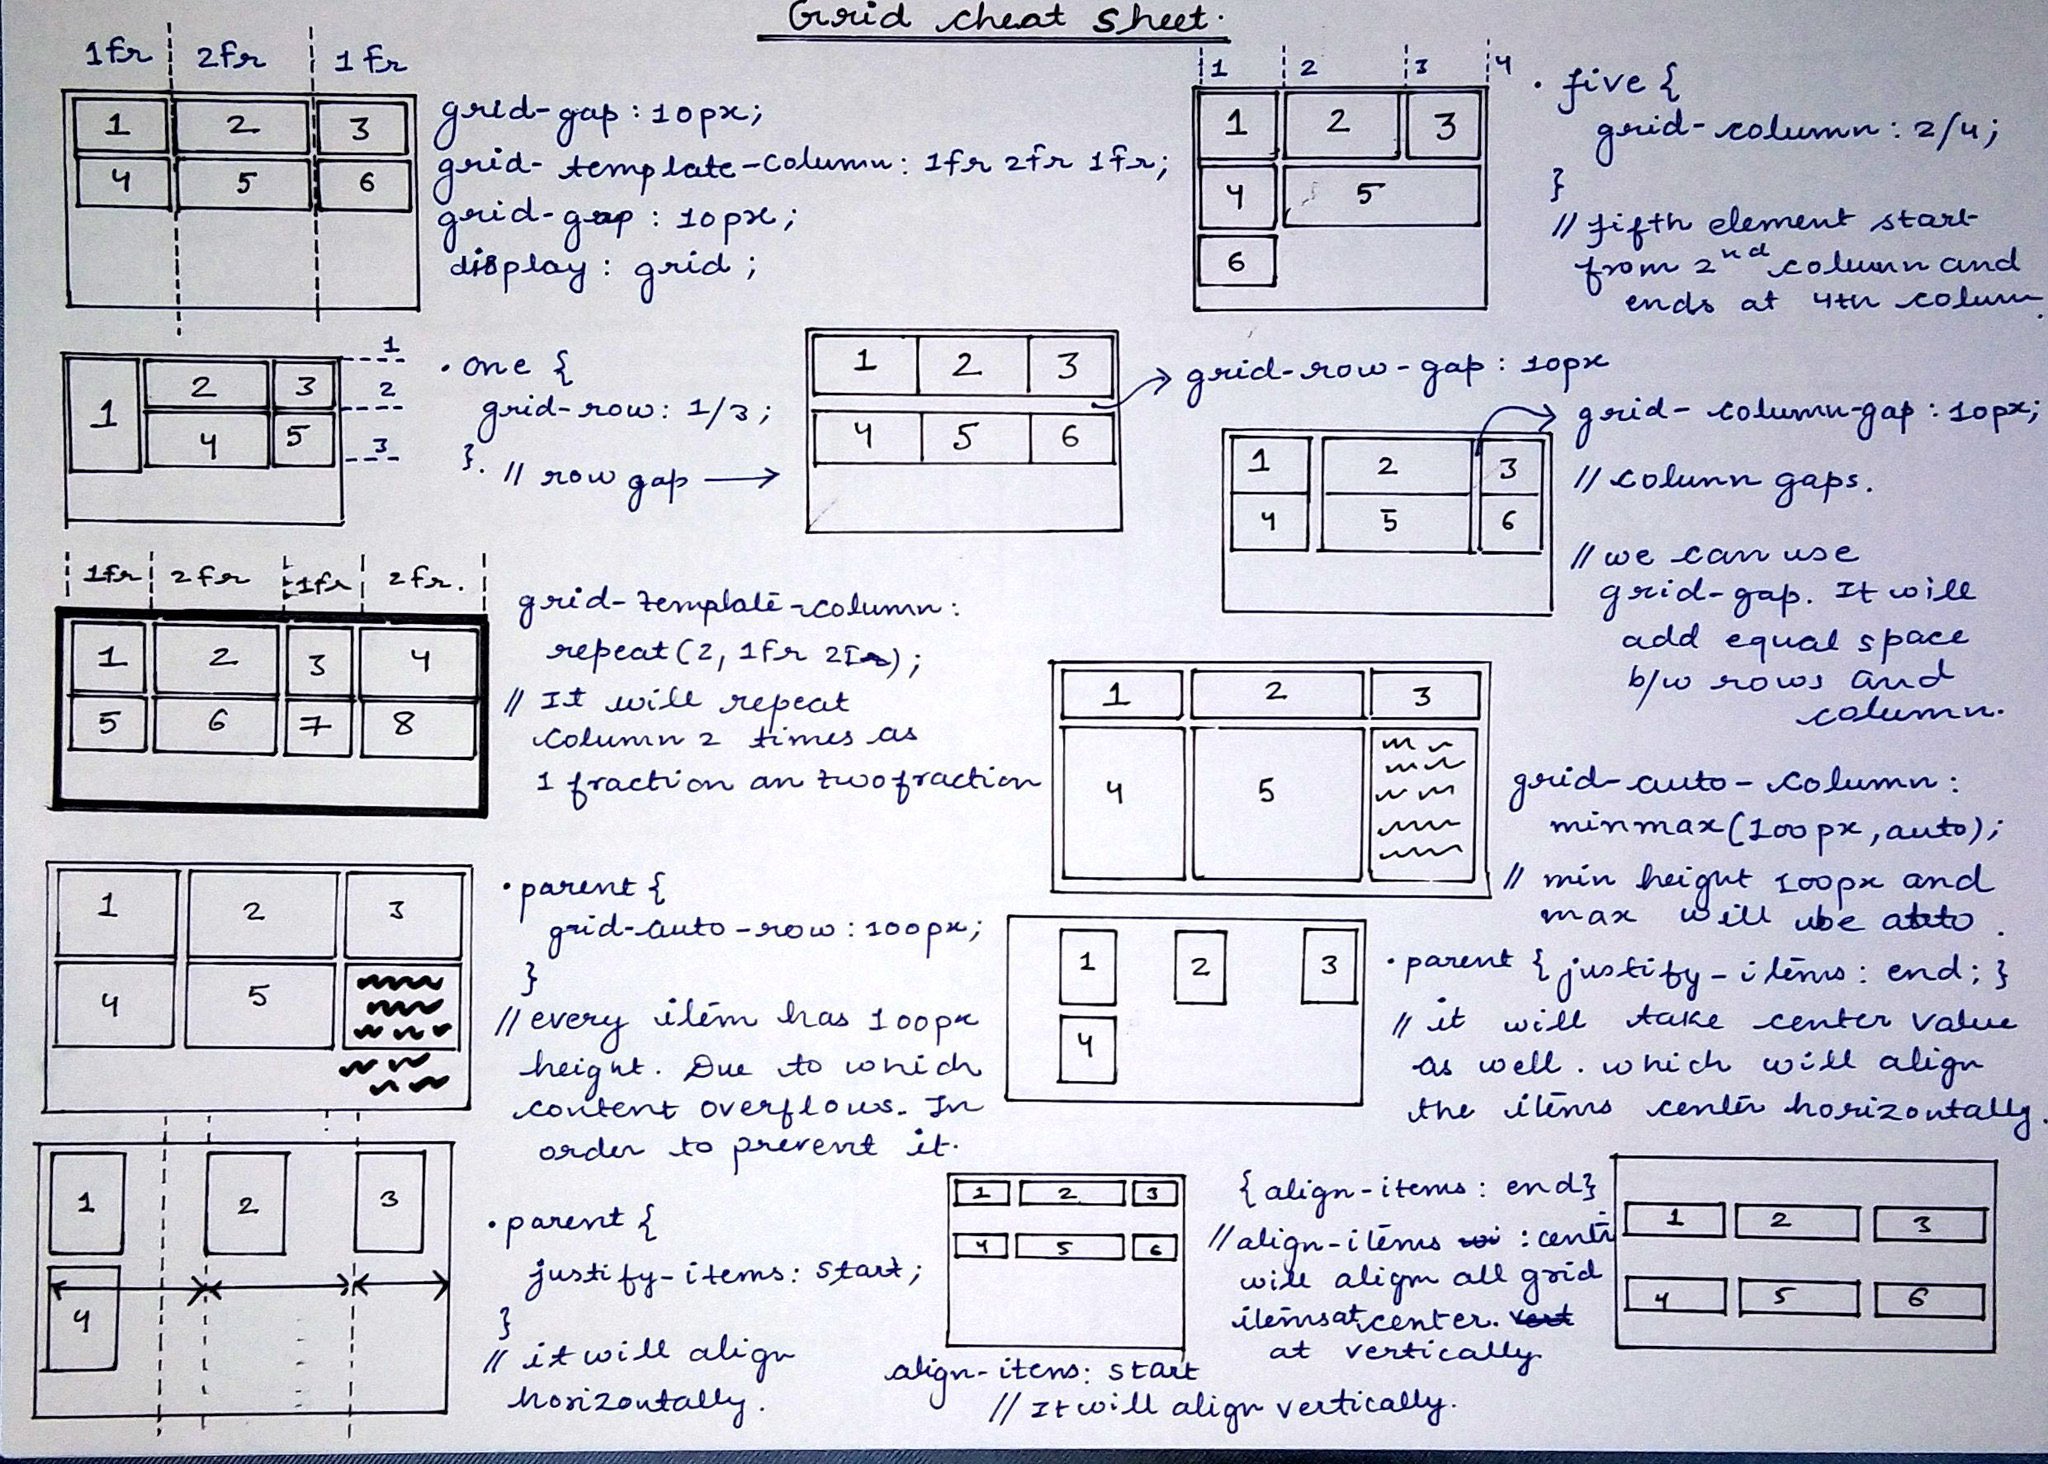 Grid cheat sheet.
1fr 2fr 1fr
1 2 3
4 5 6
grid-gap: 10px;
grid-template-column: 1fr 2fr 1fr;
grid-gap: 10px;
display: grid;
1 2 3 4
1 2 3
4 5
6
. five {
grid-column: 2/4;
}
// fifth element start
from 2nd column and
ends at 4th colum.
1 2 3
4 5
1
2
3
. one {
grid-row: 1/3;
}.
// row gap
1 2 3
4 5 6
grid-row-gap: 10px
grid-column-gap: 10px;
1 2 3
4 5 6
// column gaps.
// we can use
grid-gap. It will
add equal space
b/w rows and
column.
1fr 2fr 1fr 2fr.
1 2 3 4
5 6 7 8
grid-template-column:
repeat(2, 1fr 2fr);
// It will repeat
column 2 times as
1 fraction an two fraction
1 2 3
4 5
grid-auto-column:
minmax(100px, auto);
// min height 100px and
max will be auto.
1 2 3
4 5
. parent {
grid-auto-row: 100px;
}
// every item has 100px
height. Due to which
content overflows. In
order to prevent it.
1 2 3
4
. parent { justify-items: end; }
// it will take center value
as well. which will align
the items center horizontally.
1 2 3
4
. parent {
justify-items: start;
}
// it will align
horizontally.
1 2 3
4 5 6
align-itens: start
// It will align vertically.
{align-items: end}
// align-items : cente
will align all grid
items at center.
at vertically
1 2 3
4 5 6